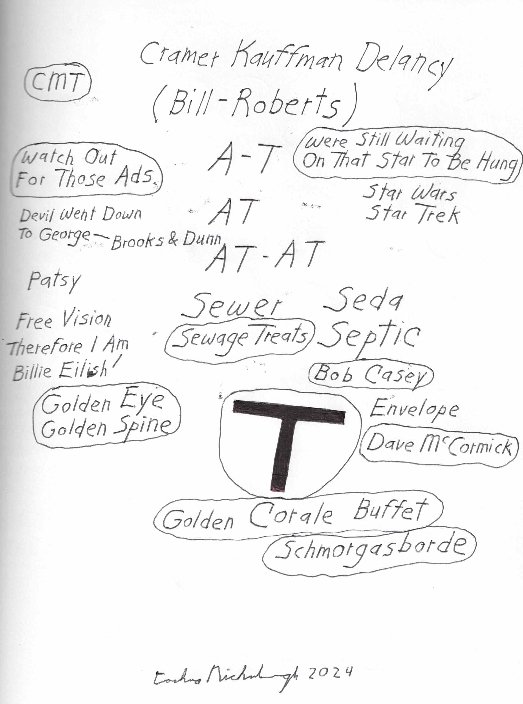 Cramer Kauffman Delancy
CMT
(Bill-Roberts)
Watch Out
For Those Ads.
A-T
Were Still Waiting
On That Star To Be Hung
Star Wars
Star Trek
Devil Went Down
To George - Brooks & Dunn
AT
AT-AT
Patsy
Sewer
Seda
Free Vision
Therefore I Am
Billie Eilish!
Sewage Treats
Septic
Bob Casey
Golden Eye
Golden Spine
T
Envelope
Dave McCormick
Golden Corale Buffet
Schmorgasborde
2024